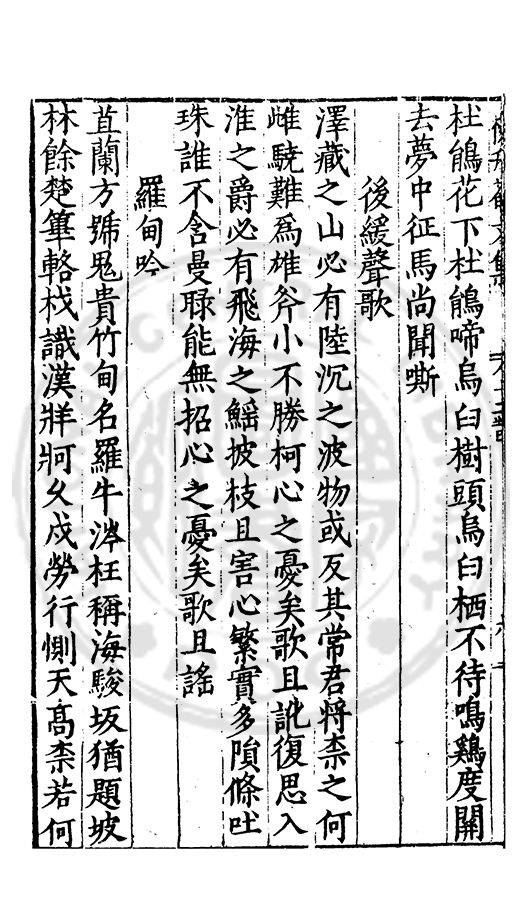 杜鵑花下杜鵑啼烏臼樹頭烏臼栖不待鳴鷄度關
去夢中征馬尚聞嘶
後緩聲歌
澤藏之山必有陸沉之波物或反其常君將柰之何
雌驍難爲雄斧小不勝柯心之憂矣歌且訛復思入
淮之爵必有飛海之鰩披枝且害心繁實多隕條吐
珠誰不含曼睩能無招心之憂矣歌且謠
羅甸吟
苴蘭方號鬼貴竹甸名羅牛渁枉稱海駿坂猶題坡
林餘楚篳輅栈識漢牂牁久戍勞行惻天高柰若何